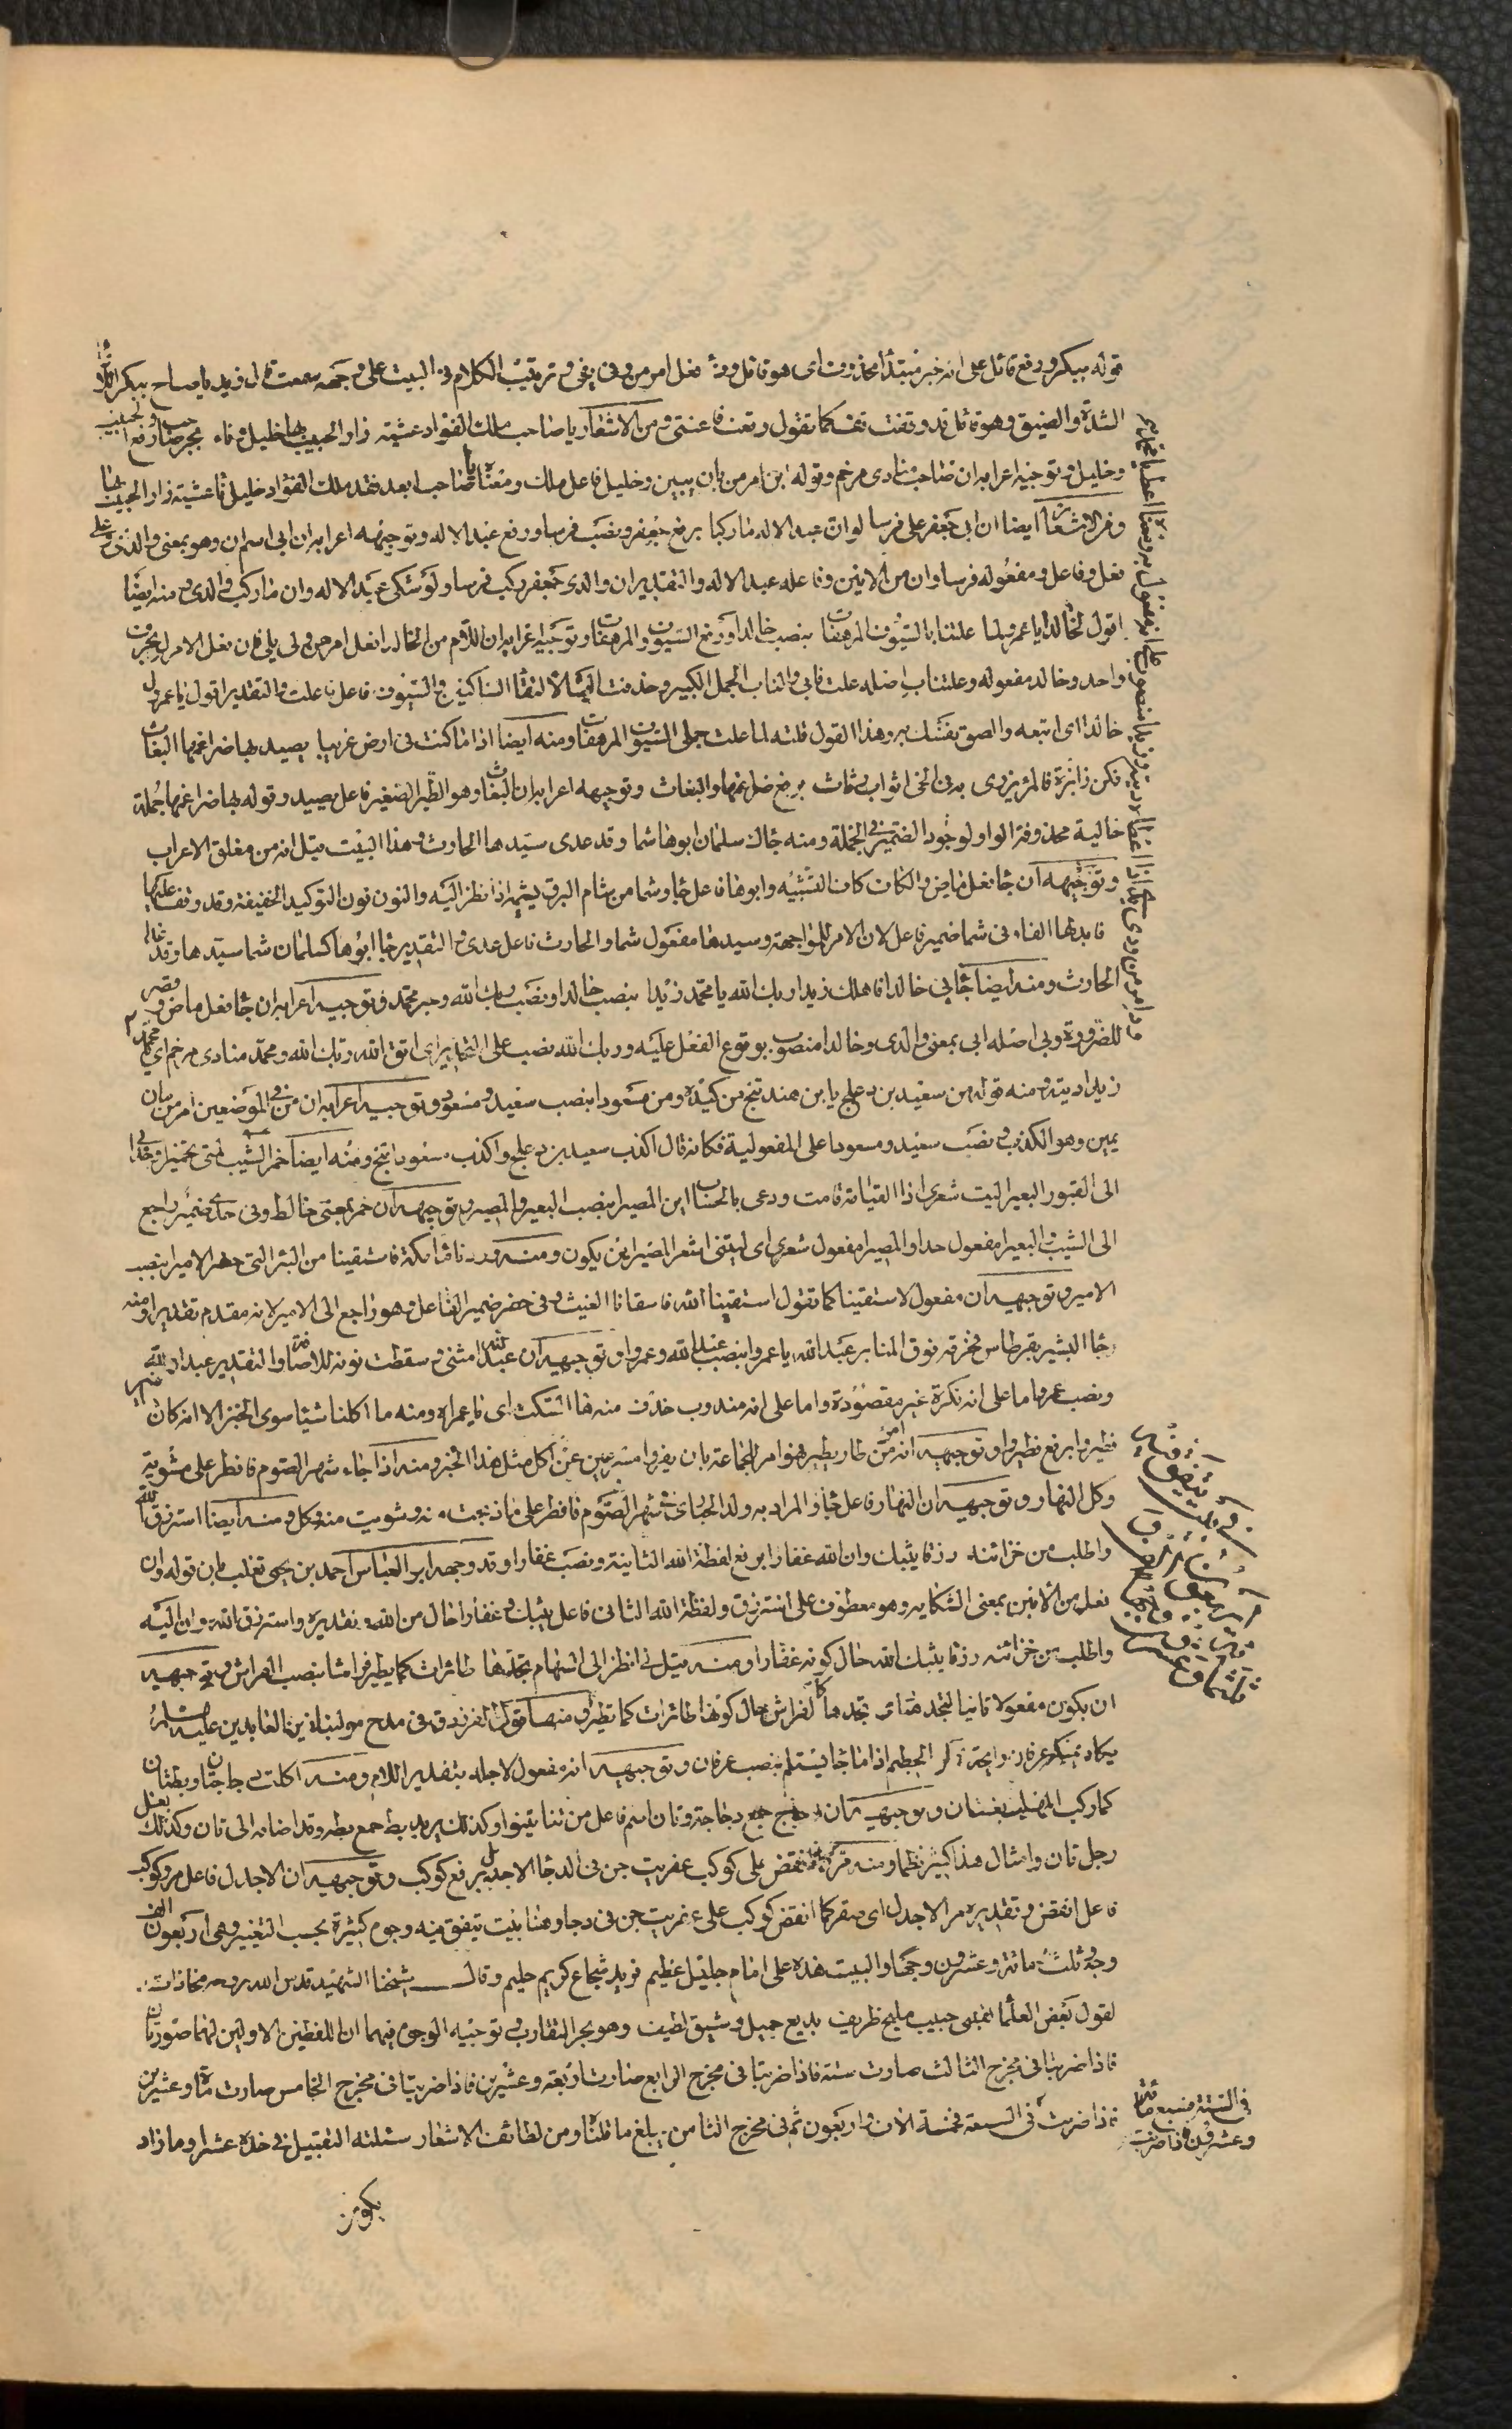 قوله ببكر ورفع قاتل على انه خبر مبتدأ محذوف اى هو قاتل وف فعل امر من وفى يفى وترتيب الكلام فى البيت على وجهه سمعت قال زيد يا صاح ببكر
الشدة والضيق وهو قاتل قد وقفت تقف كما تقول وقعت فاعنتى ومن الاشعار يا صاحب ملك الفؤاد عشية زار الحبيب بها خليل ناء بجر صاحب ورفع الحبيب
وخليل وتوجيه اعرابه ان صاحب منادى مرخم وقوله بن امر من بان يبين وخليل فاعل ملك ومعناه يا صاحب ابعد فقد ملك الفؤاد خليل ناء عشية زار الحبيب بها
ومن الاشعار ايضا ان ابى جعفر على فرسا لو ان عبد الاله ما ركبا برفع جعفر ونصب فرسا ورفع عبد الاله وتوجيه اعرابه ان ابى اسم ان وهو بمعنى والدى وعلى
فعل وفاعل ومفعوله فرسا وان من الانين وفاعله عبد الاله والتقدير ان والدى جعفر ركب فرسا ولو شكى عبد الاله وان ما ركب والدى ومنه ايضا
اقول لخالدا يا عمرو لما علتنا بالسيوف المرهفات بنصب خالدا ورفع السيوف والمرهفات وتوجيه اعرابه ان اللام من لخالدا فعل امر من ولى يلى فان فعل الامر بحرف
واحد وخالد مفعوله وعلتناب اصله علت نابى والناب الجمل الكبير وحذفت الياء لالتقاء الساكنين والسيوف فاعل علت والتقدير اقول يا عمرو ل
خالدا اى اتبعه والصق نفسك به وهذا القول قلته لما علت جملى السيوف المرهفات ومنه ايضا اذا ما كنت فى ارض غريبا يصيد بها ضراغمها البغاث
فكن ذا بزة فالمرء يزرى به فى الحى اثواب رثاث برفع ضراغمها والبغاث وتوجيه اعرابه ان البغاث وهو الطير الصغير فاعل يصيد وقوله بها ضراغمها جملة
حالية محذوفة الواو لوجود الضمير فى الجملة ومنه جاك سلمان ابوهاشما وقد عدى سيدها الحارث وهذا البيت قيل انه من مغلق الاعراب
وتوجيهه ان جا فعل ماض والكاف كاف التشبيه وابوها فاعل جا وشما من شام البرق يشيمه اذا نظر اليه والنون نون التوكيد الخفيفة وقد وقف عليها
فابدلها الفا وفى شما ضمير فاعل لان الامر للمواجهة وسيدها مفعول شما والحارث فاعل عدى والتقدير جا ابوها كسلمان شما سيدها وقد عدا
الحارث ومنه ايضا جا بى خالدا فاهلك زيدا ربك الله يا محمد زيدا بنصب خالدا ونصب ربك الله وجر محمد وتوجيه اعرابه ان جا فعل ماض وقصر
للضرورة وبى اصله ابى بمعنى والدى وخالدا منصوب بوقوع الفعل عليه وربك الله نصب على التحذير اى اتق الله ربك الله ومحمد منادى مرخم اى يا محمد
زيدا ديته ومنه قوله من سعيد بن دعلج يا بن هند تنج من كيده ومن مسعودا بنصب سعيد ومسعود وتوجيه اعرابه ان من فى الموضعين امر من مان
يمين وهو الكذب ونصب سعيد ومسعودا على المفعولية فكانه قال اكذب سعيد بن دعلج واكذب مسعودا تنج ومنه ايضا خمر الشيب لمتى تخميرا وحدا
الى القبور البعيرا ليت شعرى اذا القيامة قامت ودعى بالحساب اين المصيرا بنصب البعير والمصير وتوجيهه ان خمر بمعنى خالط وفى حدا ضمير راجع
الى الشيب والبعيرا مفعول حدا والمصيرا مفعول شعرى اى ليتنى اشعر المصير اين يكون ومنه وردنا ماء مكة فاستقينا من البئر التى حفر الاميرا بنصب
الامير وتوجيهه ان مفعول لاستقينا كما تقول استقينا الله فاسقانا الغيث وفى حفر ضمير الفاعل وهو راجع الى الامير لانه مقدم تقديرا ومنه
جا البشير بقرطاس فخرقه فوق المنابر عبد الله يا عمروا بنصب عبد الله وعمروا وتوجيهه ان عبدا الله مثنى وسقطت نونه للاضافة والتقدير عبدان لله
ونصب عمرو اما على انه نكرة غير مقصودة واما على انه مندوب حذف منه هاء السكت اى يا عمراه ومنه ما اكلنا شيئا سوى الخبز الا انه كان
فطيرا برفع فطير وتوجيهه انه امر من طار يطير فهو امر للجماعة بان يفروا مسرعين عن اكل مثل هذا الخبز ومنه اذا جاء شهر الصوم فافطر على مشوية
وكل النهار وتوجيهه ان النهار فاعل جا والمراد به ولد الحبارى وشهر الصوم فافطر على ما ذبحت منه وشويت منه وكل ومنه ايضا استرزق الله
واطلب من خزائنه رزقا يثبك وان الله غفارا برفع لفظة الله الثانية ونصب غفارا وقد وجهه ابو العباس احمد بن يحيى ثعلب بان قوله وان
فعل من الانين بمعنى الشكاية وهو معطوف على استرزق ولفظة الله الثانى فاعل يثبك وغفارا حال من الله وتقديره واسترزق الله وان اليه
واطلب من خزائنه رزقا يثبك الله حال كونه غفارا ومنه قيل لى انظر الى السهام تجدها طائرات كما يطير فراشا بنصب الفراش وتوجيهه
ان يكون مفعولا ثانيا لتجدها اى تجدها كالفراش حال كونها طائرات كما تطير ومنها قول الفرزدق فى مدح مولينا زين العابدين عليه السلام
يكاد يمسكه عرفان راحته ركن الحطيم اذا ما جا يستلم بنصب عرفان وتوجيهه انه مفعول لاجله بتقدير اللام ومنه اكلت دجاجتان وبطتان
كما ركب المهلب بغلتان وتوجيهه ان دجاج جمع دجاجة وتان اسم فاعل من تنا يتنوا وكذلك يريد بط جمع بطة وقد اضافه الى تان وكذلك بغل
رجل تان وامثال هذا كثير نظما ومنه مر كما انقض على كوكب عفريت جن فى الدجا الاجدل برفع كوكب وتوجيهه ان الاجدل فاعل مر وكوكب
فاعل انقض وتقديره مر الاجدل اى صقر كما انقض كوكب على عفريت جن فى دجا وهنا بيت يتفق فيه وجوه كثيرة بحسب التغيير وهى اربعون الف
وجه وثلث مائة وعشرون وجها والبيت هذه على امام جليل عظيم فريد شجاع كريم حليم وقال شيخنا الشهيد قدس الله روحه محاذات
لقول بعض العلماء لقلبى حبيب مليح ظريف بديع جميل رشيق لطيف وهو بحر التقارب وتوجيه الوجوه فيهما ان اللفظين الاولين لهما صورتان
فاذا ضربتا فى مخرج الثالث صارت ستة فاذا ضربتا فى مخرج الرابع صارت اربعة وعشرين فاذا ضربتا فى مخرج الخامس صارت مائة وعشرين
فى الستة فسبع مائة
وعشرون فاذا ضربت
فاذا ضربت فى السبعة فخمسة الاف واربعون ثم فى مخرج الثامن يبلغ ما قلنا ومن لطائف الاشعار سئلته التقبيل فى خده عشرا وما زاد
يكون